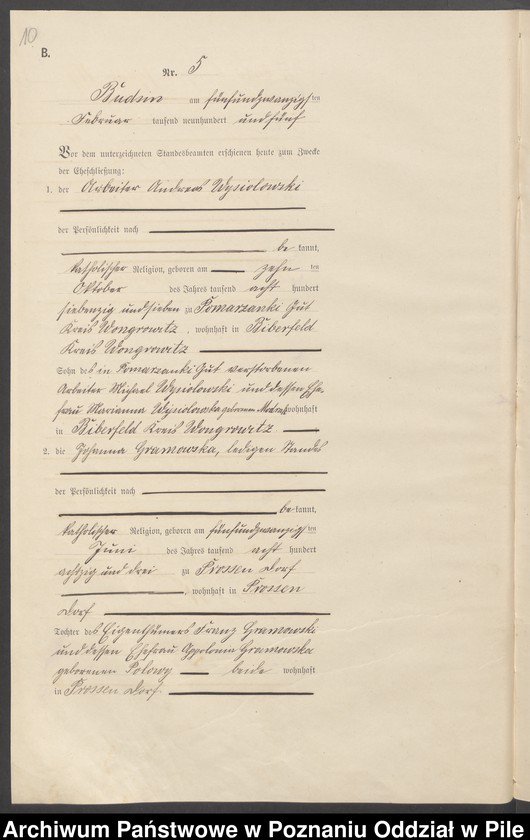 10
B.
Nr. 5
Budsin am fünfundzwanzigsten
Februar tausend neunhundert und fünf
Vor dem unterzeichneten Standesbeamten erschienen heute zum Zwecke
der Eheschließung:
1. der Arbeiter Andreas Wysiolowski
der Persönlichkeit nach
be kannt,
katholischer Religion, geboren am zehn ten
Oktober des Jahres tausend acht hundert
siebenzig und sieben zu Pomarzanki Gut
Kreis Wongrowitz, wohnhaft in Biberfeld
Kreis Wongrowitz
Sohn des in Pomarzanki Gut verstorbenen
Arbeiter Michael Wysiolowski und dessen Ehe-
frau Marianna Wysiolowska geborenen wohnhaft
in Biberfeld Kreis Wongrowitz
2. die Johanna Gramowska, ledigen Standes
der Persönlichkeit nach
be kannt,
katholischer Religion, geboren am fünfundzwanzigsten
Juni des Jahres tausend acht hundert
achtzig und drei zu Prossen Dorf
, wohnhaft in Prossen
Dorf
Tochter des Eigenthümers Franz Gramowski
und dessen Ehefrau Appolonia Gramowska
geborenen beide wohnhaft
in Prossen Dorf
Archiwum Państwowe w Poznaniu Oddział w Pile